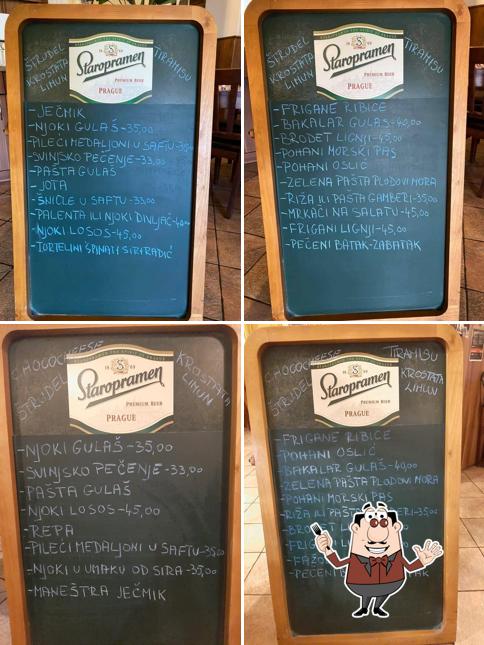 ŠTRUDEL
KROSTATA
LIHUN
TIRAMISU
Staropramen
PREMIUM BEER
PRAGUE
-JEČMIK
-NJOKI GULAŠ-35,00
-PILEĆI MEDALJONI U SAFTU-35,00
-SVINJSKO PEČENJE-33,00
-PAŠTA GULAŠ
-JOTA
-ŠNICLE U SAFTU-33,00
-PALENTA ILI NJOKI DIVLJAČ-40,00
-NJOKI LOSOS-45,00
-TORTELINI ŠPINAT I SIR I RADIĆ
ŠTRUDEL
KROSTATA
LIHUN
TIRAMISU
Staropramen
PREMIUM BEER
PRAGUE
-FRIGANE RIBICE
-BAKALAR GULAŠ-40,00
-BRODET LIGNJI-45,00
-POHANI MORSKI PAS
-POHANI OSLIĆ
-ZELENA PAŠTA PLODOVI MORA
-RIŽA ILI PAŠTA GAMBERI-35,00
-MRKAČI NA SALATU-45,00
-FRIGANI LIGNJI-45,00
-PEČENI BATAK-ZABATAK
CHOCOCHEESE
ŠTRUDEL
KROSTATA
LIHUN
Staropramen
PREMIUM BEER
PRAGUE
-NJOKI GULAŠ-35,00
-SVINJSKO PEČENJE-33,00
-PAŠTA GULAŠ
-NJOKI LOSOS-45,00
-REPA
-PILEĆI MEDALJONI U SAFTU-35,00
-NJOKI U UMAKU OD SIRA-35,00
-MANEŠTRA JEČMIK
CHOCOCHEESE
ŠTRUDEL
TIRAMISU
KROSTATA
LIHUN
Staropramen
PREMIUM BEER
PRAGUE
-FRIGANE RIBICE
-POHANI OSLIĆ
-BAKALAR GULAŠ-40,00
-ZELENA PAŠTA PLODOVI MORA
-POHANI MORSKI PAS
-RIŽA ILI PAŠTA
-35,00
-PEČENI